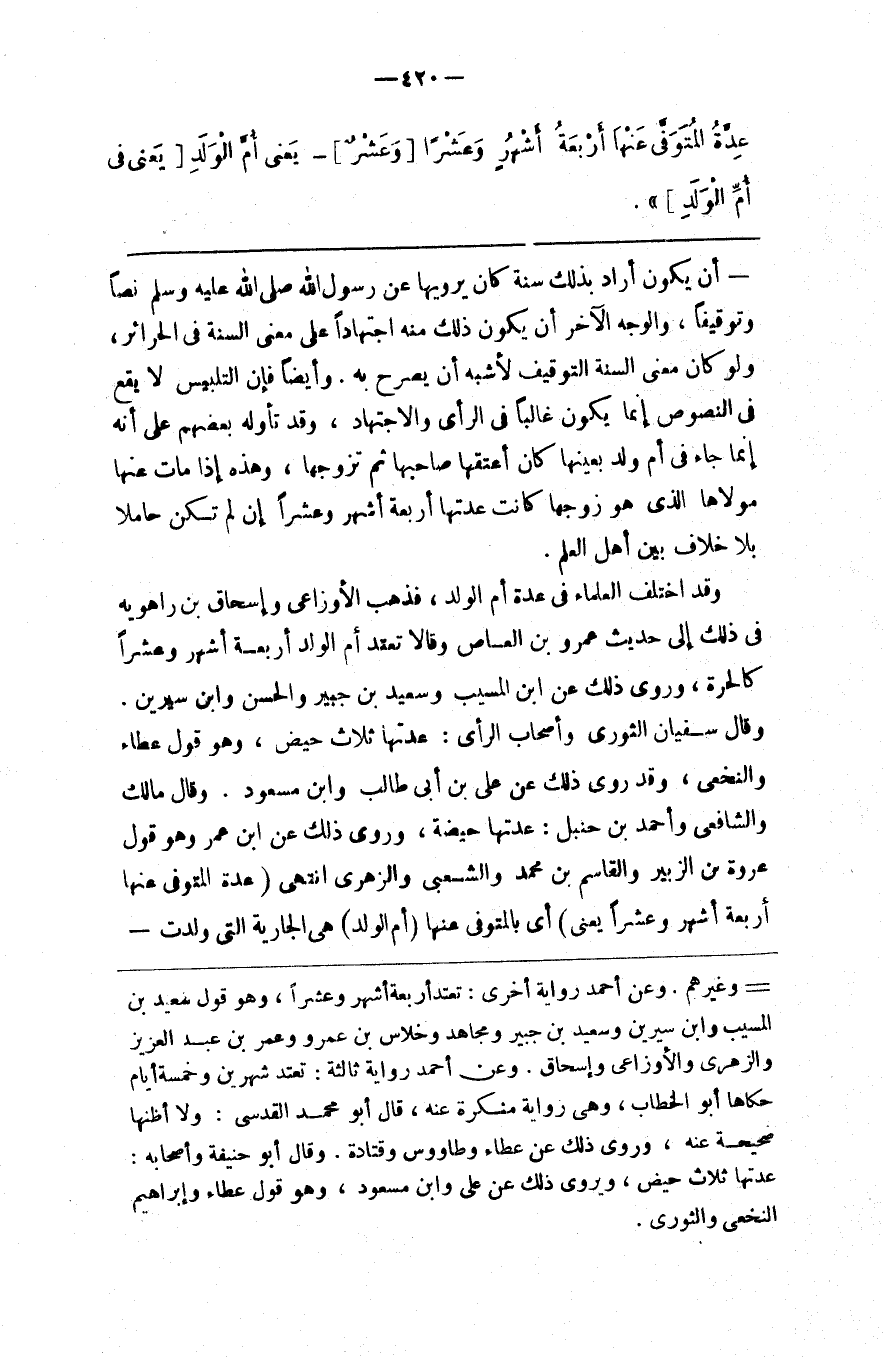 — ٤٢٠ —
عِدَّةُ المُتَوَفَّى عَنْهَا أَرْبَعَةُ أَشْهُرٍ وَعَشْرًا [ وَعَشْرٌ ] – يَعْنى أُمَّ الْوَلَدِ [ يَعْنى فى
أُمِّ الْوَلَدِ ] » .
— أن يكون أراد بذلك سنة كان يرويها عن رسول الله صلى الله عليه وسلم نصاً
وتوقيفاً ، والوجه الآخر أن يكون ذلك منه اجتهاداً على معنى السنة فى الحرائر ،
ولو كان معنى السنة التوقيف لأشبه أن يصرح به . وأيضاً فإن التلبيس لا يقع
فى النصوص إنما يكون غالباً فى الرأى والاجتهاد ، وقد تأوله بعضهم على أنه
إنما جاء فى أم ولد بعينها كان أعتقها صاحبها ثم تزوجها ، وهذه إذا مات عنها
مولاها الذى هو زوجها كانت عدتها أربعة أشهر وعشراً إن لم تكن حاملا
بلا خلاف بين أهل العلم .
وقد اختلف العلماء فى عدة أم الولد ، فذهب الأوزاعى وإسحاق بن راهويه
فى ذلك إلى حديث عمرو بن العاص وقالا تعتد أم الولد أربعة أشهر وعشراً
كالحرة ، وروى ذلك عن ابن المسيب وسعيد بن جبير والحسن وابن سيرين .
وقال سفيان الثورى وأصحاب الرأى : عدتها ثلاث حيض ، وهو قول عطاء
والنخعى ، وقد روى ذلك عن على بن أبى طالب وابن مسعود . وقال مالك
والشافعى وأحمد بن حنبل : عدتها حيضة ، وروى ذلك عن ابن عمر وهو قول
عروة بن الزبير والقاسم بن محمد والشعبى والزهرى انتهى ( عدة المتوفى عنها
أربعة أشهر وعشراً يعنى ) أى بالمتوفى عنها ( أم الولد ) هى الجارية التى ولدت —
= وغيرهم . وعن أحمد رواية أخرى : تعتد أربعة أشهر وعشراً ، وهو قول سعيد بن
المسيب وابن سيرين وسعيد بن جبير ومجاهد وخلاس بن عمرو وعمر بن عبد العزيز
والزهرى والأوزاعى وإسحاق . وعن أحمد رواية ثالثة : تعتد شهرين وخمسة أيام
حكاها أبو الخطاب ، وهى رواية منكرة عنه ، قال أبو محمد القدسى : ولا أظنها
صحيحة عنه ، وروى ذلك عن عطاء وطاووس وقتادة . وقال أبو حنيفة وأصحابه :
عدتها ثلاث حيض ، ويروى ذلك عن على وابن مسعود ، وهو قول عطاء وإبراهيم
النخعى والثورى .